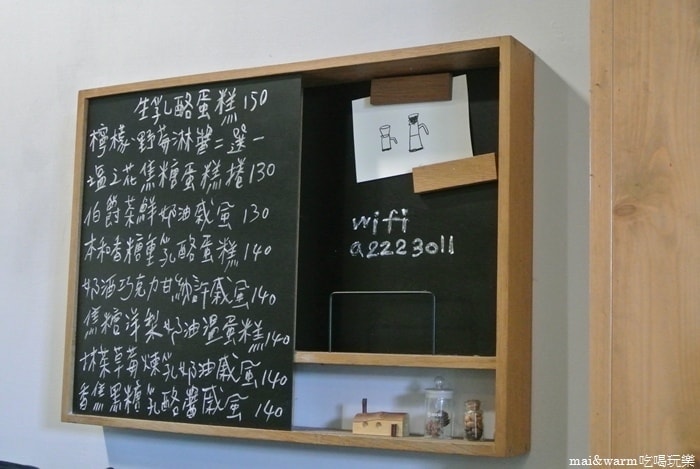 生乳酪蛋糕 150
檸檬、野莓淋醬二選一
塩之花焦糖蛋糕捲 130
伯爵茶鮮奶油戚風 130
本和香糖重乳酪蛋糕 140
奶酒巧克力甘納許戚風 140
焦糖洋梨奶油溫蛋糕 140
抹茶草莓煉乳奶油戚風 140
香蕉黑糖乳酪醬戚風 140
wifi
a2223011
mai&warm吃喝玩樂